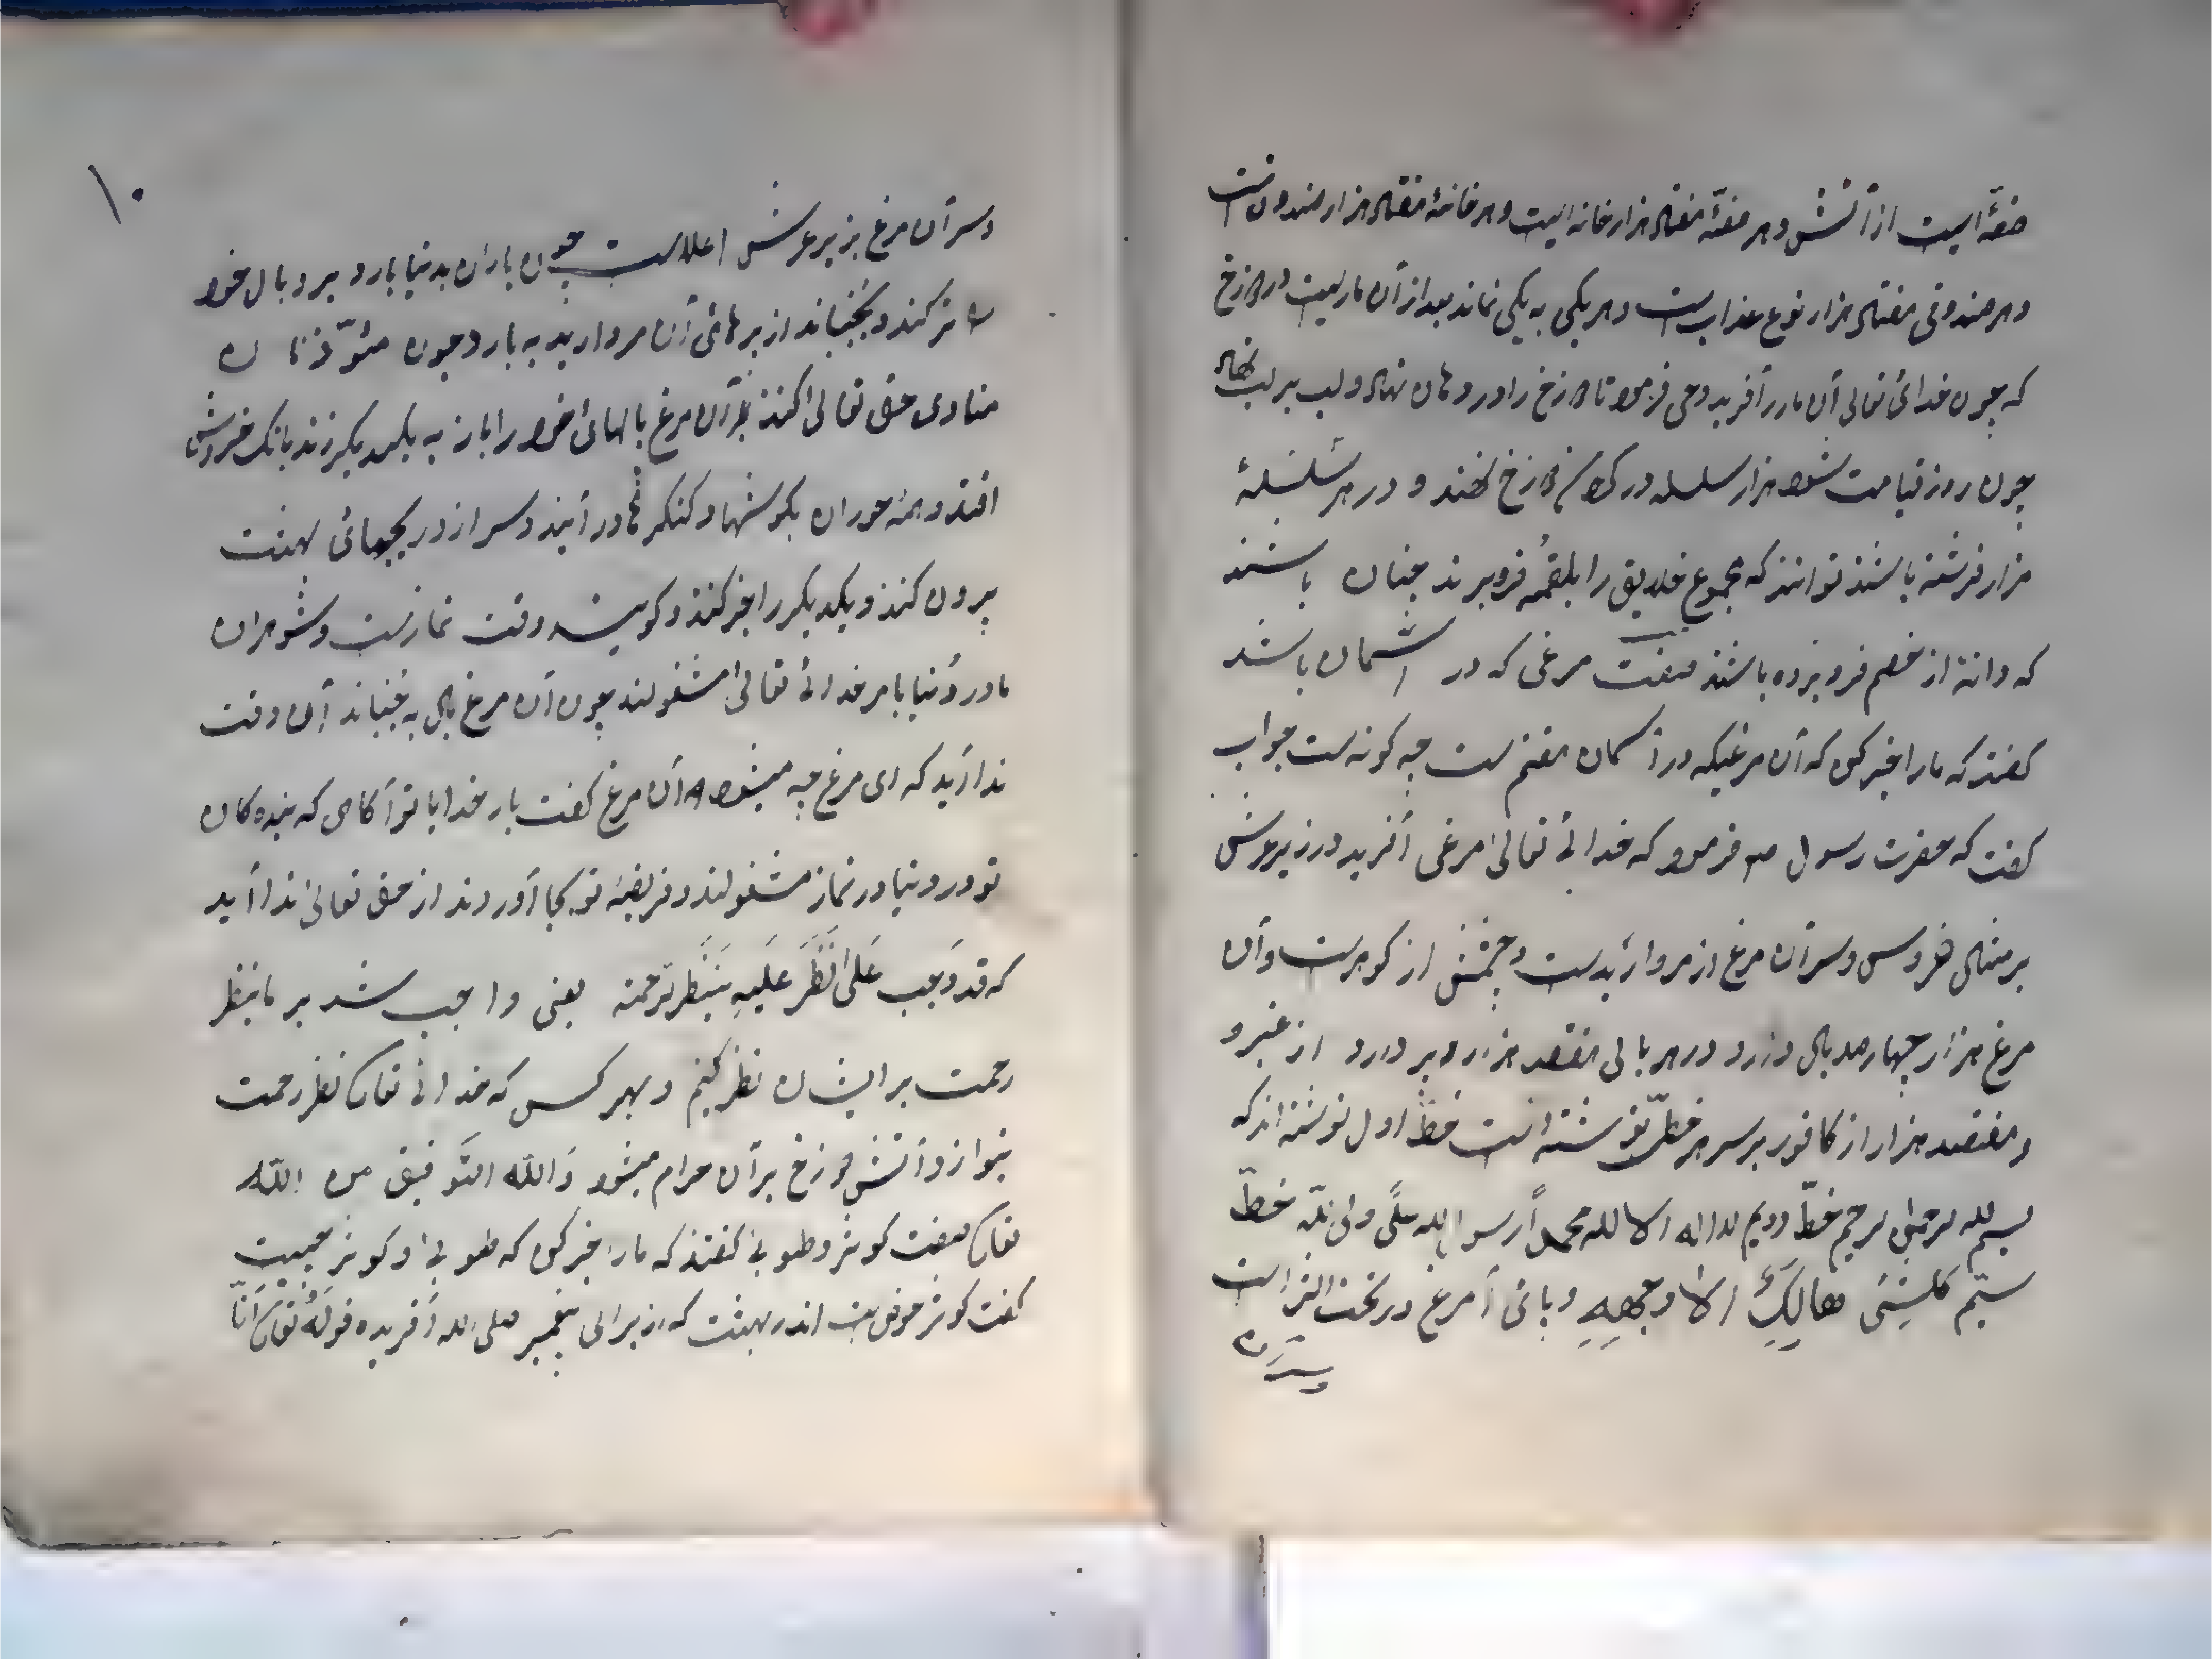 صفهٔ است از آتش و هر صفهٔ هفتاد هزار خانه است و هر خانهٔ هفتاد هزار صندوق است
و هر صندوقی هفتاد هزار نوع عذاب است و هر یکی به یکی نماند بعد از آن ماریست در دوزخ
که چون خدائ تعالی آن مار را آفرید وحی فرمود تا دوزخ را در دهان نهاد و لب بر لب نهاد
چون روز قیامت شود هزار سلسله در دوزخ نهند و در هر سلسلهٔ
هزار فرشته باشند توانند که مجموع خلایق را بلقمه فرو برند چنان باشند
که دانهٔ از خصم فرو برده باشند صفت مرغی که در آسمان باشد
گفتند که ما را خبر کن که آن مرغیکه در آسمان هفتم ست چه گونه ست جواب
گفت که حضرت رسول ص فرمود که خدائے تعالیٰ مرغی آفرید در زیر عرش
بر مثال خروس و سر آن مرغ از مروارید ست و چشمش از گوهر ست و آن
مرغ هزار چهار صد بال دارد در هر بالی هفتصد هزار و پر دارد از عنبر و
و هفتصد هزار از کافور بر سر هر خطی نوشته است خط اول نوشته اند که
بسم الله الرحمن الرحیم خط دویم لا اله الا الله محمداً رسول الله علی ولی الله خط
سیّم کلشئی هالک الا وجهه و پائ آ مرغ در تحت الثرا است
و سر آن
۱۰
و سر آن مرغ بزیر عرش اعلا ست چون باران بدنیا بارد پر و بال خود
تر کند و بجنباند از پرهائ آن مروارید به بارد چون مئوذنان
منادی حق تعالیٰ کنند آن مرغ بالهائ خود را باز به یکدیگر زند بانگ خروش
افتد و همه حوران بگوشها و کنگرها در آیند و سر از دریچهائ بهشت
بیرون کنند و یکدیگر را خبر کنند و گویند وقت نماز ست و شوهران
ما در دنیا بامر خدائے تعالیٰ مشغولند چون آن مرغ بال به جنباند آن وقت
ندا آید که ای مرغ چه میشود آن مرغ گفت بار خدایا تو آگاهی که بنده گان
تو در دنیا در نماز مشغولند و فریضهٔ تو بجا آوردند از حق تعالیٰ ندا آید
که قد وَجب عَلیٰ نَظَرَ عَلَیهِ رحمته یعنی واجب شد بر ما بنظر
رحمت بر ایشان نظر کنیم و بهر کس که خدائے تعالی نظر رحمت
بنوازد آتش دوزخ بر آن حرام میشود وَالله التوفیق من الله
تعالی صفت کوثر و طوبیٰ گفتند که ما را خبر کن که طوبیٰ و کوثر چیست
گفت کوثر حوض ست اندر بهشت که از برای پیغمبر صلی الله آفریده قولهُ تعالی اَنّا